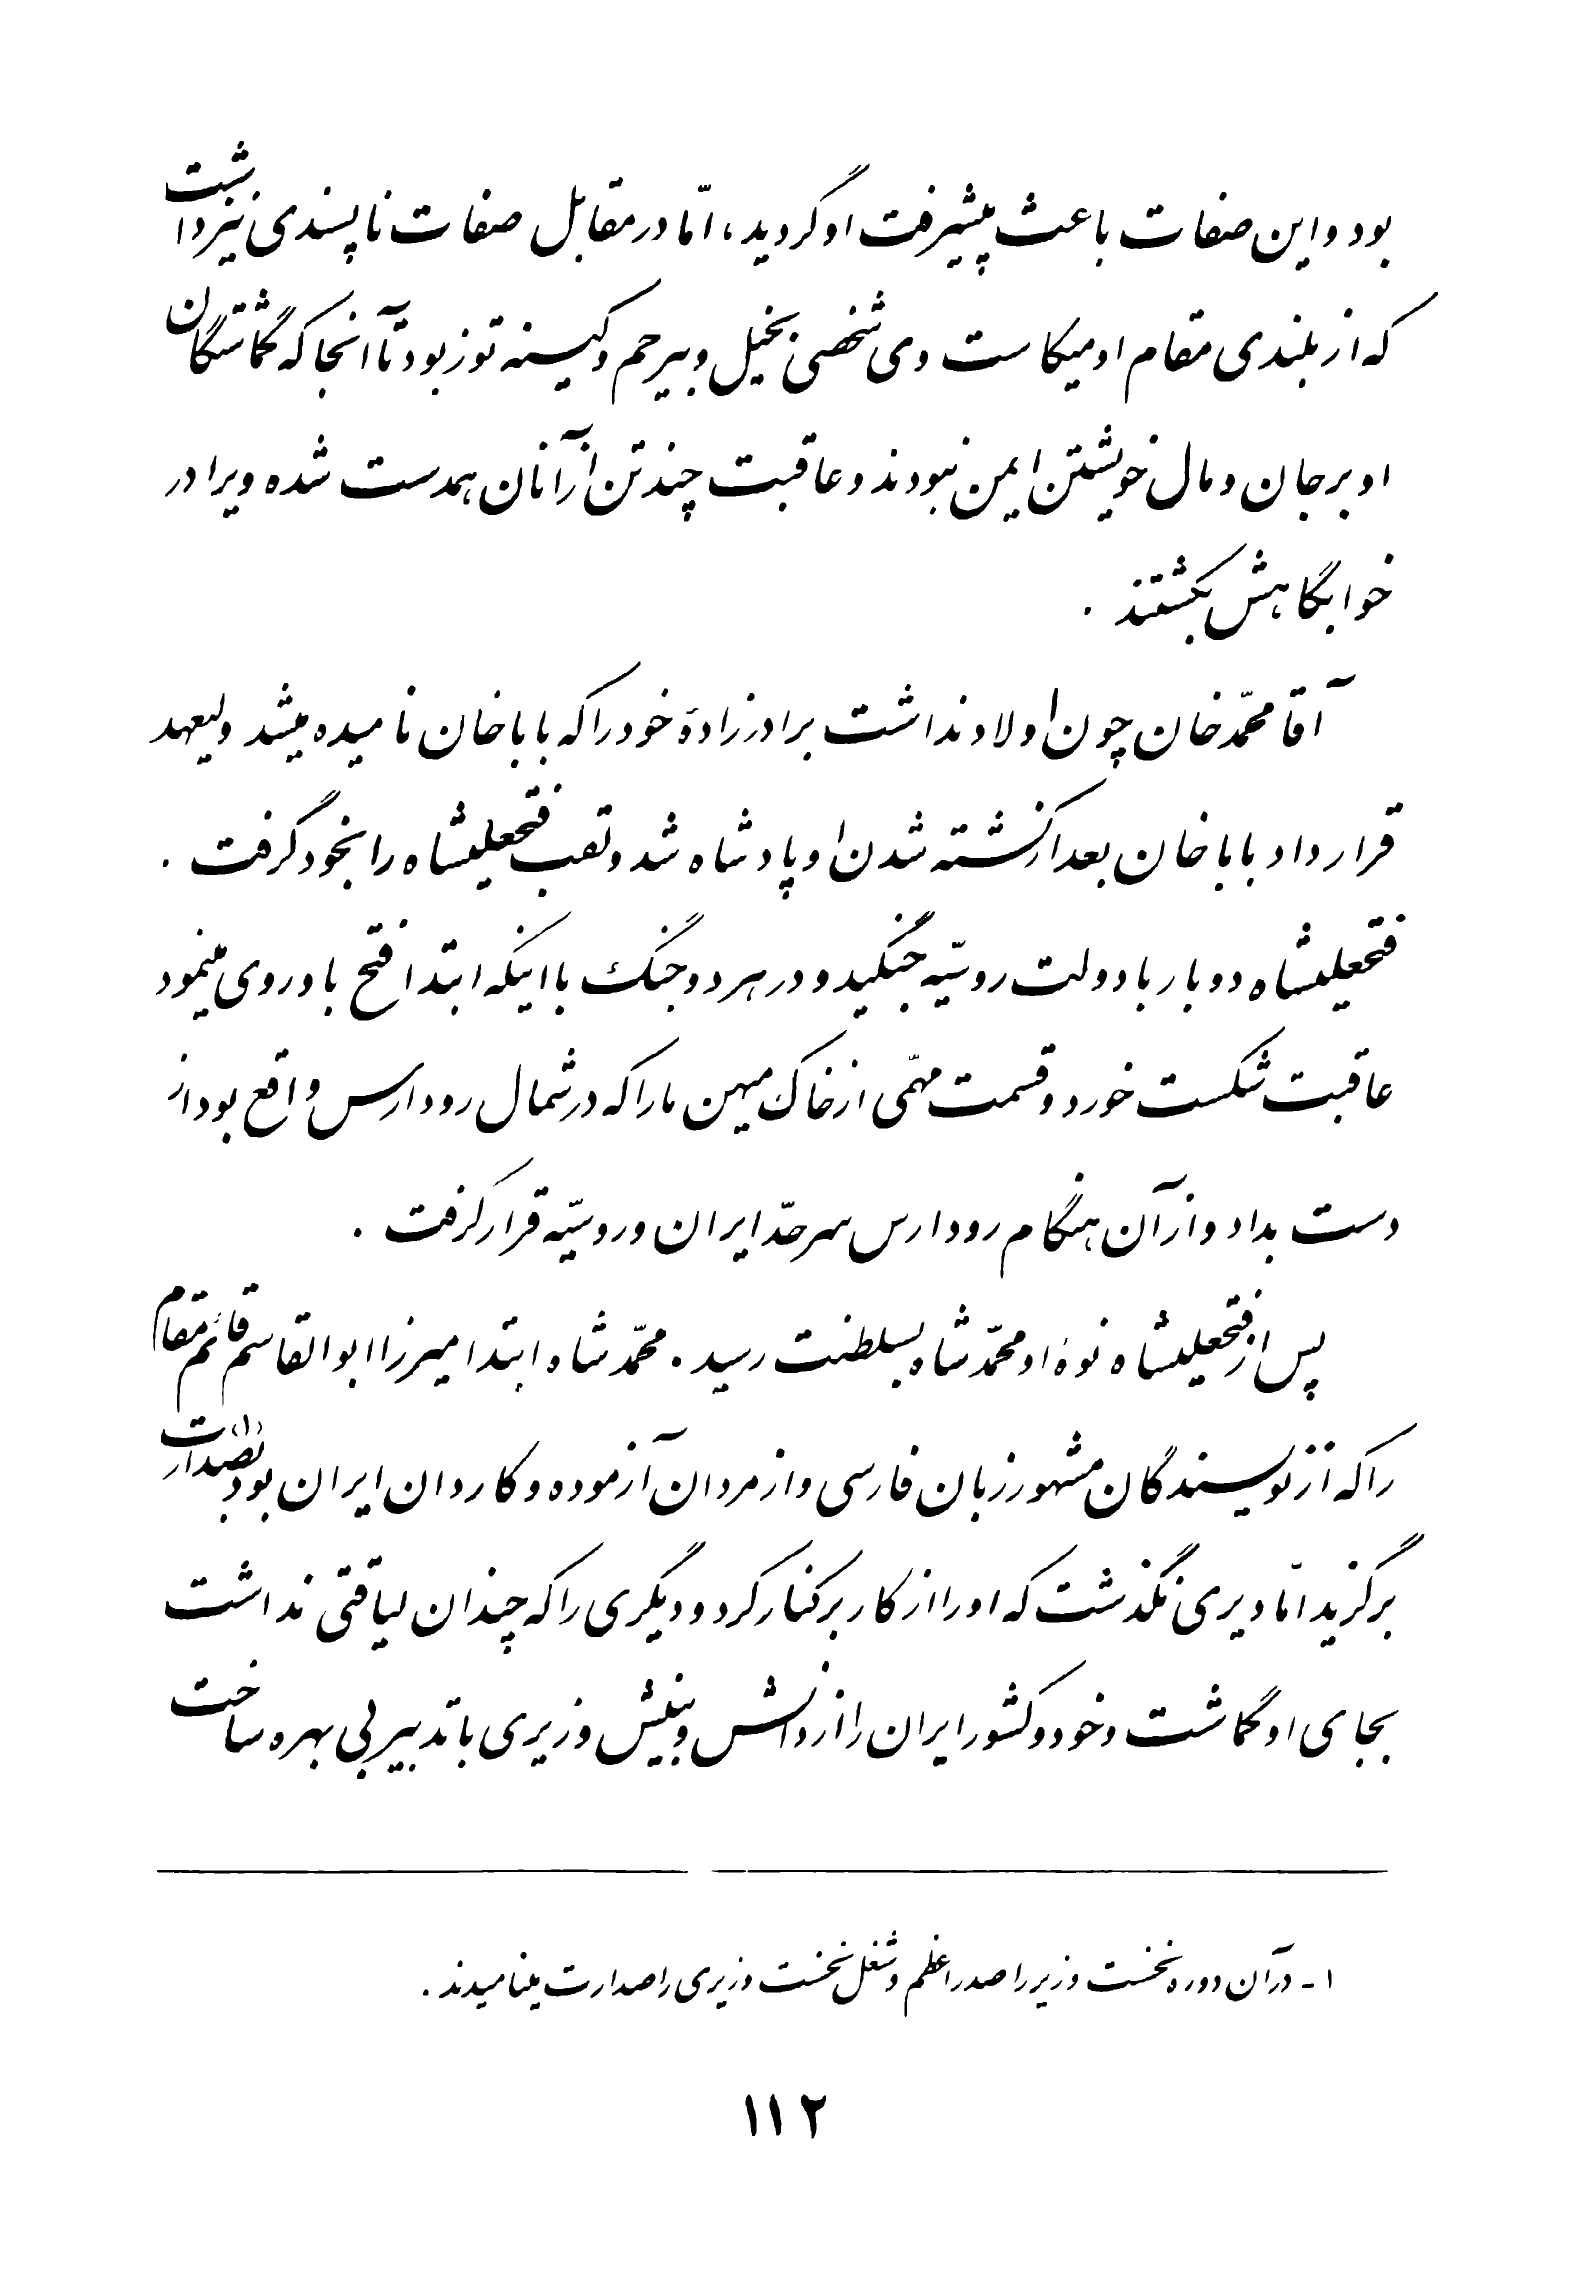 بود و این صفات باعث پیشرفت او گردید، امّا در مقابل صفات ناپسندی نیز داشت
که از بلندی مقام او میکاست وی شخصی بخیل و بیرحم و کینه توز بود تا آنجا که گماشتگان
او بر جان و مال خویشتن ایمن نبودند و عاقبت چند تن از آنان همدست شده ویرا در
خوابگاهش بکشتند .
آقا محمّد خان چون اولاد نداشت برادرزادهٔ خود را که باباخان نامیده میشد ولیعهد
قرار داد باباخان بعد از کشته شدن او پادشاه شد و لقب فتحعلیشاه را بخود گرفت .
فتحعلیشاه دو بار با دولت روسیّه جنگید و در هر دو جنگ با اینکه ابتدا فتح با و روی مینمود
عاقبت شکست خورد و قسمت مهمّی از خاک میهن ما را که در شمال رود ارس واقع بود از
دست بداد و از آن هنگام رود ارس سرحدّ ایران و روسیّه قرار گرفت .
پس از فتحعلیشاه نوهٔ او محمّد شاه بسلطنت رسید . محمّد شاه ابتدا میرزا ابوالقاسم قائم مقام
را که از نویسندگان مشهور زبان فارسی و از مردان آزموده و کاردان ایران بود بصدارت (۱)
برگزید امّا دیری نگذشت که او را از کار برکنار کرد و دیگری را که چندان لیاقتی نداشت
بجای او گماشت و خود و کشور ایران را از دانش و بینش وزیری با تدبیر بی بهره ساخت
۱ - در آن دوره نخست وزیر را صدر اعظم و شغل نخست وزیری را صدارت مینامیدند .
۱۱۲